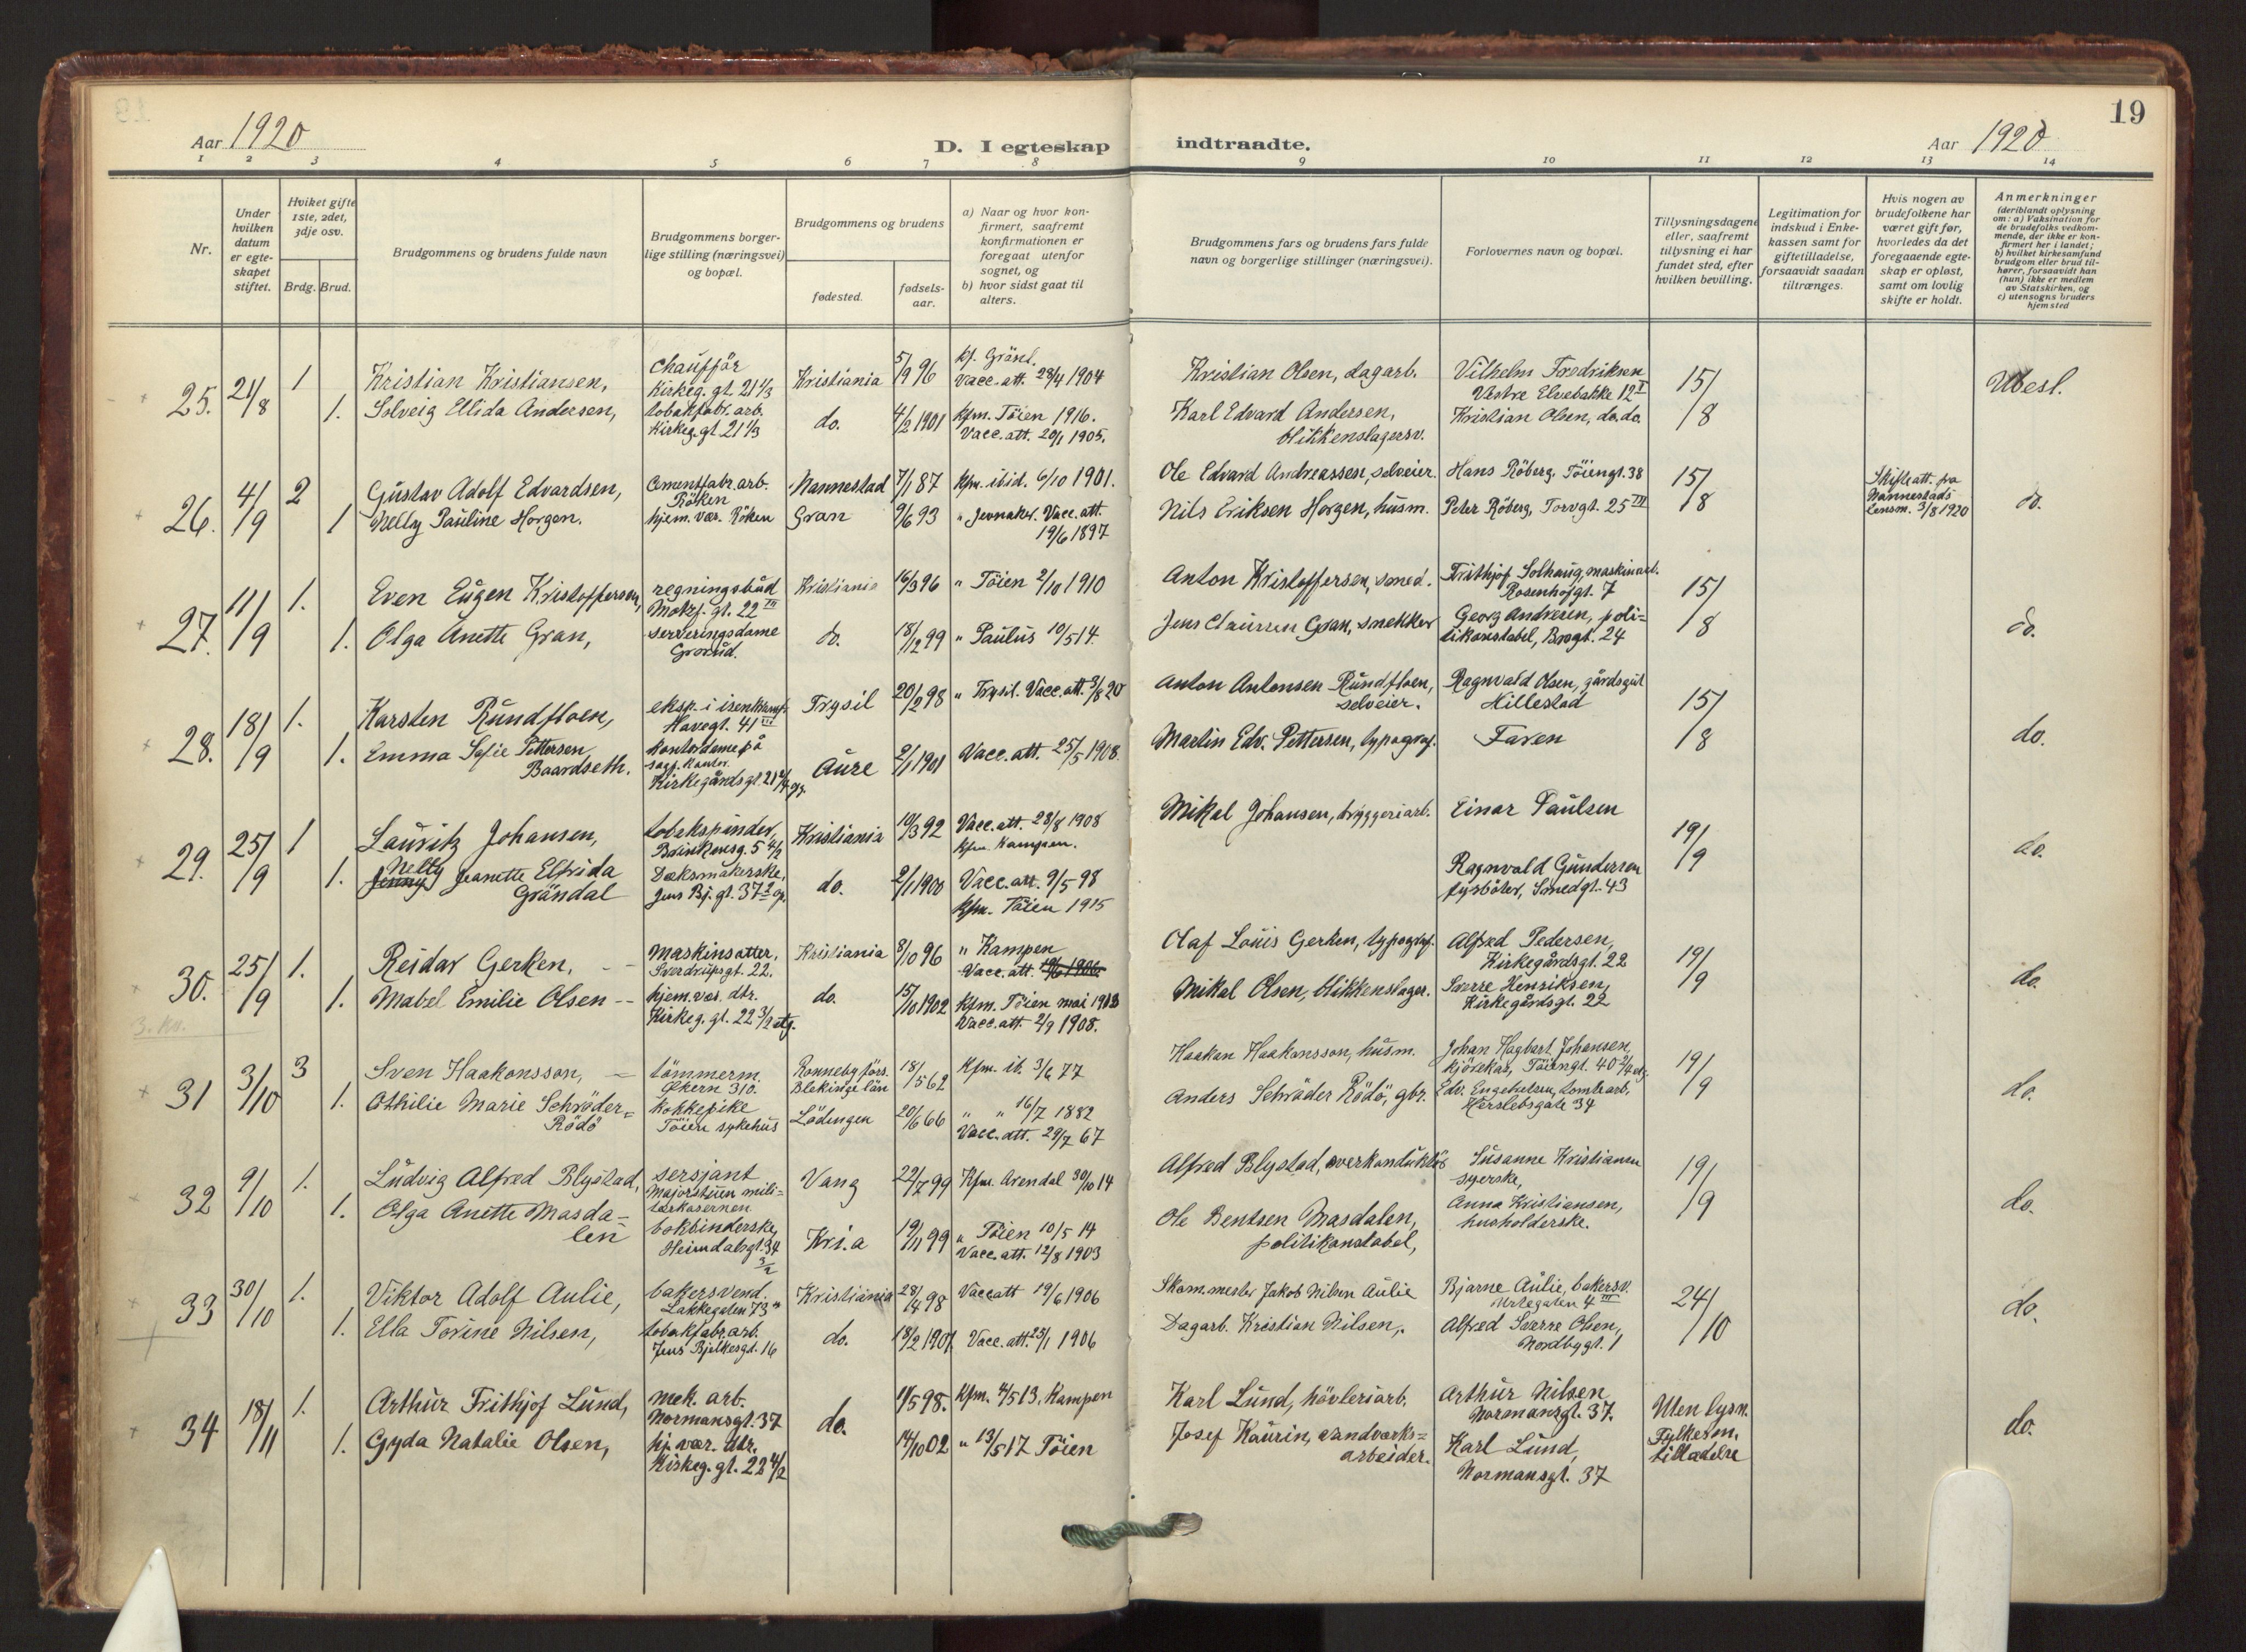 19
Aar 1920
D. I egteskap indtraadte.
Aar 1920
1 2 3 4 5 6 7 8 9 10 11 12 13 14
Nr.
Under hvilken datum er egteskapet stiftet.
Hviket gifte 1ste, 2det, 3dje osv.
Brdg. Brud.
Brudgommens og brudens fulde navn
Brudgommens borgerlige stilling (næringsvei) og bopæl.
Brudgommens og brudens
fødested.
fødselsaar.
a) Naar og hvor konfirmert, saafremt konfirmationen er foregaat utenfor sognet, og
b) hvor sidst gaat til alters.
Brudgommens fars og brudens fars fulde navn og borgerlige stillinger (næringsvei).
Forlovernes navn og bopæl.
Tillysningsdagene eller, saafremt tillysning ei har fundet sted, efter hvilken bevilling.
Legitimation for indskud i Enkekassen samt for giftetilladelse, forsaavidt saadan tiltrænges.
Hvis nogen av brudefolkene har været gift før, hvorledes da det foregaaende egteskap er opløst, samt om lovlig skifte er holdt.
Anmerkninger
(deriblandt oplysning om: a) Vaksination for de brudefolks vedkommende, der ikke er konfirmert her i landet; b) hvilket kirkesamfund brudgom eller brud tilhører, forsaavidt han (hun) ikke er medlem av Statskirken, og c) utensogns bruders hjemsted
25. 21/8 1 Kristian Kristiansen, chauffør Kirkeg. gt. 21 1/3 Kristiania 5/9 96 Vacc. att. 29/4 1904 Kristian Olsen, dagarb. Vilhelm Fredriksen Vestre Elvebakke 12 I 15/8 Ubesl.
1. Solveig Ellida Andersen, tobakfabr. arb. Kirkeg. gt 21 1/3 do. 4/2 1901 Kfm. Töien 1916. Vacc. att. 20/1 1905. Karl Edvard Andersen, blikkenslagersv. Kristian Olsen, do. do.
26. 4/9 2 Gustav Adolf Edvardsen, Cementfabr. arb. Röken Nannestad 7/1 87 Kfm. ibid. 6/10 1901. Ole Edvard Andreassen, selveier. Hans Röberg, Töiengt. 38 15/8 Skifteatt. fra Nannestads lensm. 3/8 1920 do.
1 Nelly Pauline Horgen. hjem. vær. Röken Gran 9/6 93 " Jevnaker. Vacc. att. 19/6 1897 Nils Eriksen Horgen, husm. Peter Röberg, Torvgt. 25 III
27. 11/9 1. Even Eugen Kristoffersen, regningsbud Motzf. gt. 22 III Kristiania 16/3 96 " Töien 2/10 1910 Anton Kristoffersen, smed. Frithjof Solhaug, maskinarb. Rosenhofgt. 7 15/8 do.
1. Olga Anette Gran, serveringsdame Grorud. do. 18/12 99 " Paulus 10/5 14. Jens Clausen Gran, snekker Georg Andresen, politikonstabel, Brogt. 24
28. 18/9 1. Karsten Rundfloen, eksp. i isenkramf. Havegt. 41 III Trysil 20/2 98 " Trysil. Vacc. att. 3/8 20 Anton Antonsen Rundfloen, selveier. Ragnvald Olsen, gårdsgut Hillestad 15/8 do.
1. Emma Sofie Pettersen Baardseth. Kontordame på sagf. kontor. Kirkegårdsgt. 21 Aure 2/1 1901 Vacc. att. 25/5 1908. Martin Edv. Pettersen, typograf. Faren
29. 25/9 1 Lauritz Johansen, tobakspinder, Brinkensg. 5 4/2 Kristiania 10/3 92 Vacc. att. 28/8 1908 Kfm. Kampen. Mikal Johansen, bryggeriarb. Einar Paulsen 19/9 do.
1. Jenny Nelly Jeanette Elfrida Gröndal Jens Bj. gt. 37 do. 2/1 1900 Vacc. att. 9/5 98 Kfm. Töien 1915 Ragnvald Gundersen fyrböter, Smedgt. 43
30. 25/9 1. Reidar Gerken, Maskinsætter, Sverdrupsgt. 22. Kristiania 8/10 96 " Kampen Vacc. att. Olaf Louis Gerken, typograf. Alfred Pedersen, Kirkegårdsgt. 22 19/9 do.
1. Mabel Emilie Olsen hjem. vær. dtr. Kirkeg. gt. 22 3/2 etg. do. 15/10 1902 Kfm. Töien mai 1918 Vacc. att. 2/9 1908. Mikal Olsen, blikkenslager. Sverre Henriksen, Kirkegårdsgt. 22
3. kv.
31 3/10 3 Sven Haakonsson, tömmerm. Økern 310. Ronneby förs. Blekinge län 18/5 62 Kfm. ib. 3/6 77 Haakan Haakonsson, husm. Johan Hagbart Johansen, kjörekar, Töiengt. 40 2/4 etg. 19/9 do.
1. Othilie Marie Schröder-Rödö kokkepike Töien sykehus Lödingen 20/6 66 " " 16/7 1882 Vacc. att. 29/7 67 Anders Schröder Rödö, gbr. Edv. Engebretsen, tomtearb. Herslebsgate 34
32 9/10 1. Ludvig Alfred Blystad, sersjant Majorstuen militærkasernen Vang 22/7 99 Kfm. Arendal 30/10 14 Alfred Blystad, overkonduktör Susanne Kristiansen syerske, 19/9 do.
1. Olga Anette Masdalen bokbinderske, Heimdalsgt. 34 3/2 Kri.a 19/11 99 " Töien 10/5 14 Vacc. att. 12/8 1903 Ole Bentsen Masdalen, politikonstabel, Anna Kristiansen, husholderske.
33 30/10 1. Viktor Adolf Aulie, bakersvend. Lakkegaten 73 Kristiania 28/4 98 Vacc att 19/6 1906 Skom.mester Jakob Nilsen Aulie Bjarne Aulie, bakersv. Urtegaten 4 III 24/10 do.
1. Ella Torine Nilsen, tobakfabr. arb. Jens Bjelkesgt. 16 do. 18/2 1901. Vacc. att. 23/1 1906 Dagarb. Kristian Nilsen, Alfred Sverre Olsen, Nordbygt. 1
34 18/11 1. Arthur Frithjof Lund, mek. arb. Normansgt. 37 do. 11/5 98. Kfm. 4/5 13. Kampen Karl Lund, hövleriarb. Arthur Nilsen Normansgt. 37. Uten lysn. Fylkesm. tilladelse do.
1. Gyda Natalie Olsen, hj. vær. dtr. Kirkeg. gt. 22 4/2 14/10 02 " 13/5 17 Töien Josef Kaurin, vandværksarbeider. Karl Lund, Normansgt. 37